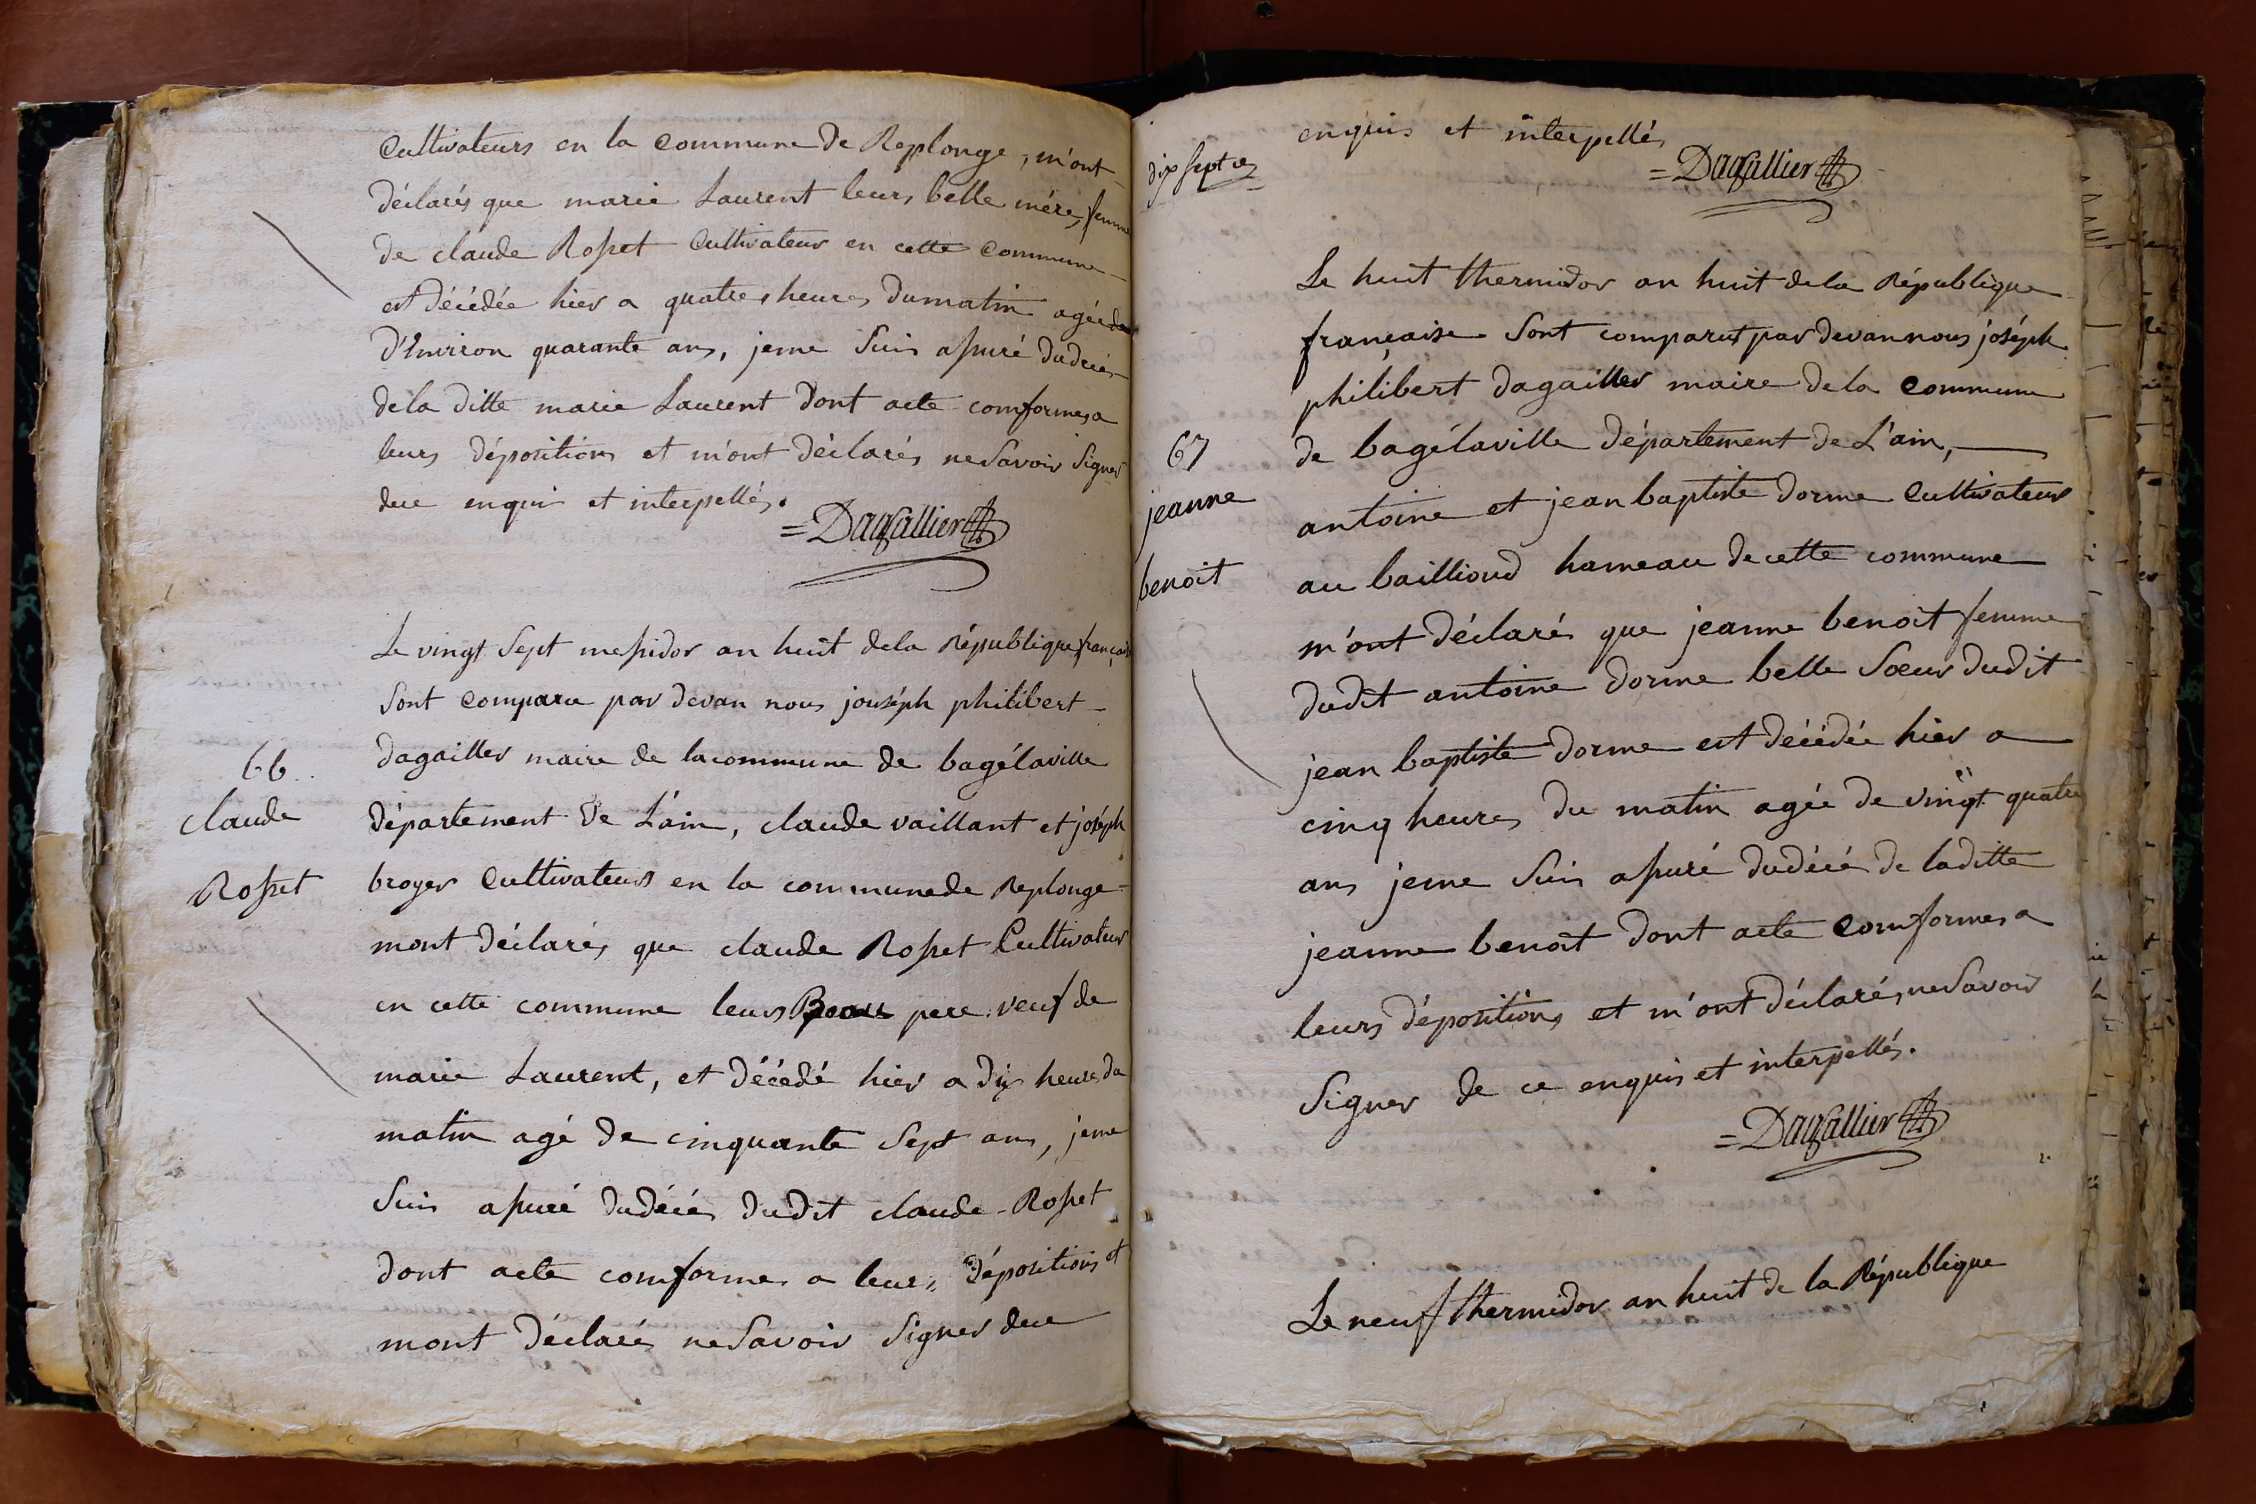 Cultivateurs en la commune de Replonge, m'ont
déclarés que marie Laurent leurs belle mére, femme
de claude Rosset Cultivateur en cette commune
est décédée hier a quatres heures du matin agée de
d'Environ quarante ans, jeme suis assuré du décés
de la ditte marie Laurent dont acte comformes a
leurs dépositions et m'ont déclarés ne savoir signer
dece enquis et interpellés.
= Dagallier
66
claude
Rosset
Le vingt sept messidor an huit dela République française
sont comparu par devan nous jouséph philibert
dagailler maire de la commune de bagélaville
département de L'ain, claude vaillant et joséph
broyer Cultivateurs en la commune de Replonge
mont déclarés que claude Rosset Cultivateur
en cette commune leurs Beau pere veuf de
marie Laurent, et décédé hier a dix heures du
matin agé de cinquante sept ans, jeme
suis assuré du décés dudit claude Rosset
dont acte comformes a leurs dépositions et
mont déclarés ne savoir signer dece
dix sept e
enquis et interpellés
= Dagallier
67
jeanne
benoit
Le huit thermidor an huit de la République
française sont comparut par devan nous joséph
philibert dagailler maire de la commune
de bagélaville département de L'ain,
antoine et jean baptiste dorme Cultivateurs
au baillioud hameau de cette commune
m'ont déclarés que jeanne benoit femme
dudit antoine dorme belle sœur dudit
jean baptiste dorme est décédée hier a
cinq heures du matin agée de vingt quatre
ans jeme suis assuré du décé de laditte
jeanne benoit dont acte comformes a
leurs dépositions et m'ont déclarés ne savoir
signer de ce enquis et interpellés.
= Dagallier
Le neuf thermidor an huit de la République